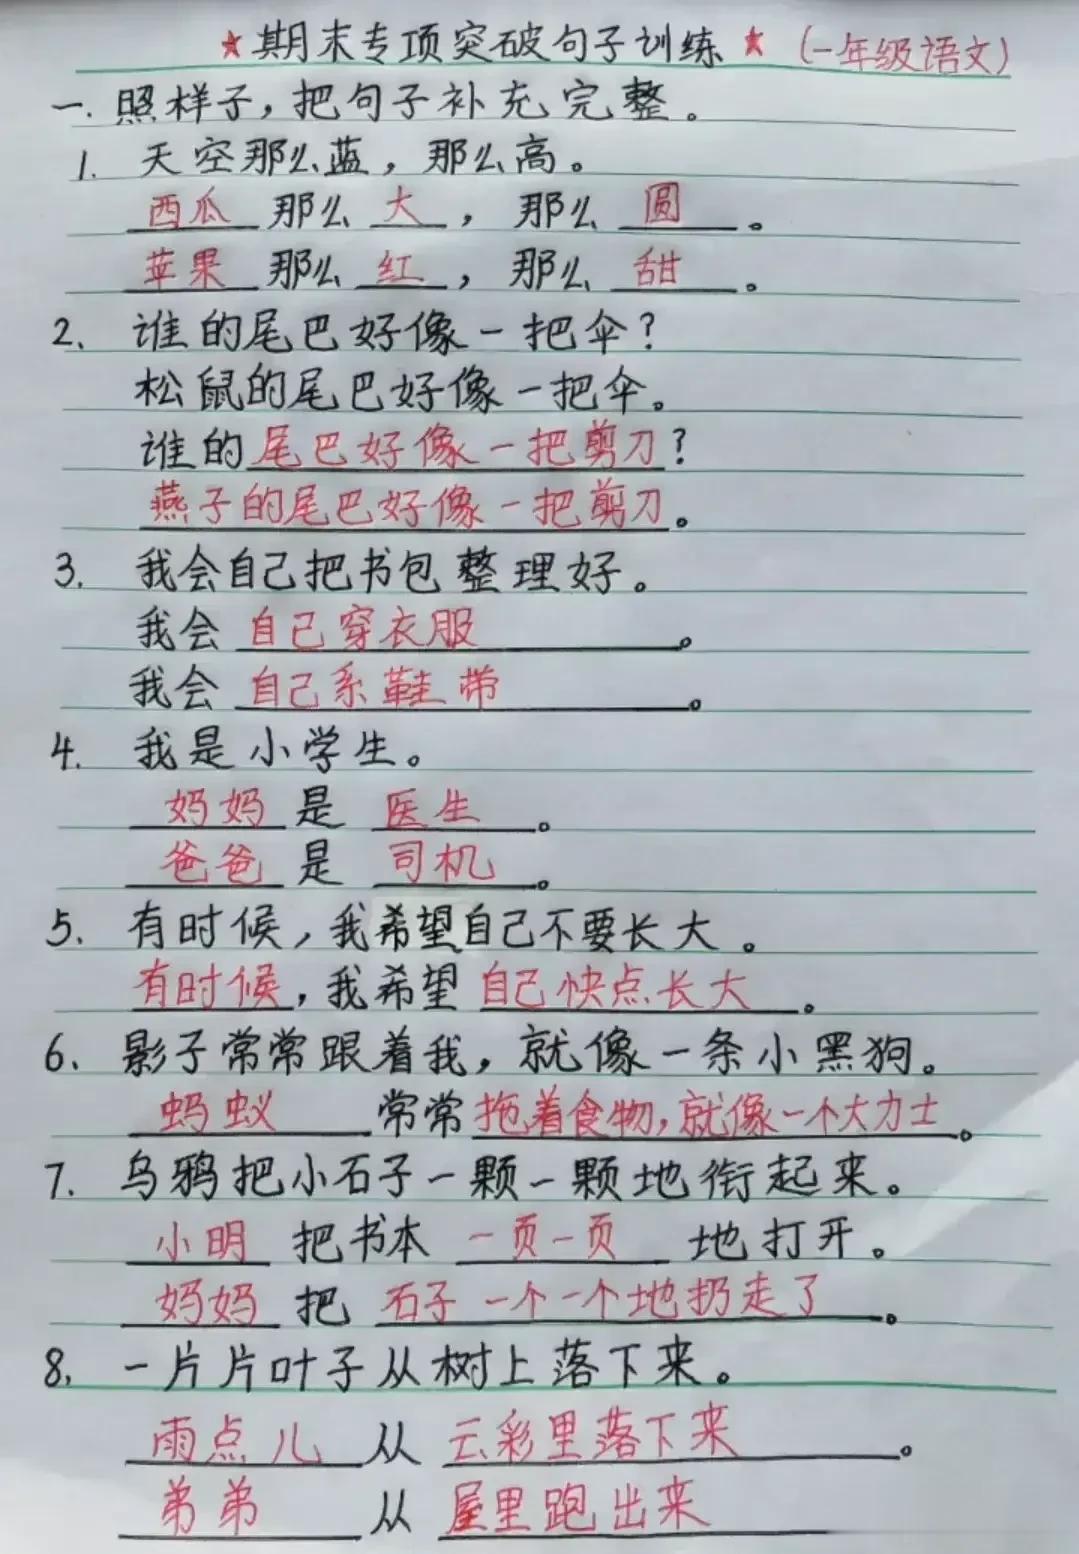 ★期末专项突破句子训练★(一年级语文)
一.照样子，把句子补充完整。
1. 天空那么蓝，那么高。
西瓜那么大，那么圆。
苹果那么红，那么甜。
2. 谁的尾巴好像一把伞？
松鼠的尾巴好像一把伞。
谁的尾巴好像一把剪刀？
燕子的尾巴好像一把剪刀。
3. 我会自己把书包整理好。
我会自己穿衣服。
我会自己系鞋带。
4. 我是小学生。
妈妈是医生。
爸爸是司机。
5. 有时候，我希望自己不要长大。
有时候，我希望自己快点长大。
6. 影子常常跟着我，就像一条小黑狗。
蚂蚁常常拖着食物，就像一个大力士。
7. 乌鸦把小石子一颗一颗地衔起来。
小明把书本一页一页地打开。
妈妈把石子一个一个地扔走了。
8. 一片片叶子从树上落下来。
雨点儿从云彩里落下来。
弟弟从屋里跑出来